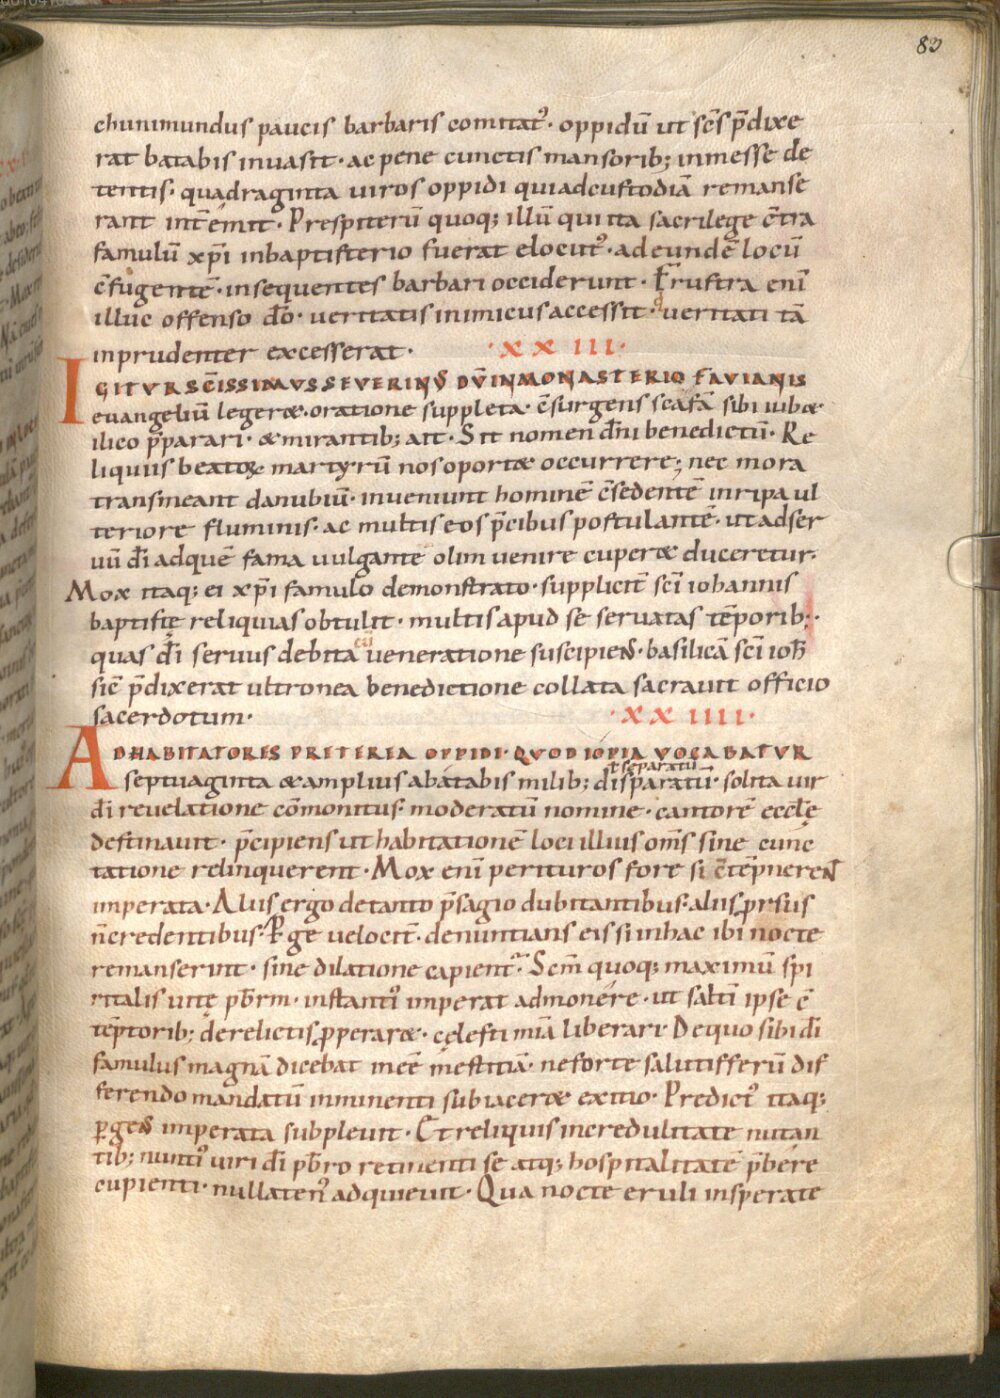 83
chunimundus paucis barbaris comitatꝰ· oppidū ut scs̄ p̄dixe
rat batabis inuasit· ac pene cunctis mansorib; inmesse de
tentis· quadraginta uiros oppidi qui adcustodiā remanse
rant intēemit· Prespiterū quoq; illū qui ita sacrilege c̄tra
famulū xp̄i inbaptisterio fuerat elocutꝰ· ad eundē locū
c̄fugentē· insequentes barbari occiderunt· Frustra enī
illuc offenso dō· ueritatis inimicus accessit· qꝰ ueritati tā
inprudenter excesserat· ·XXIII·
IGITUR SC̄ISSIMUS SEUERINꝰ DŪ IN MONASTERIO FAUIANIS
euangeliū legeret· oratione suppleta· c̄surgens scafā sibi iubet
ilico p̄parari· & mirantib; ait· Sit nomen dn̄i benedictū· Re
liquiis beatoꝝ martyrū nos oport& occurrere; nec mora
transmeant danubiū· inueniunt hominē c̄sedentē inripa ul
teriore fluminis· ac multis eos p̄cibus postulantē· ut adser
uū dī adquē fama uulgante olim uenire cuper& duceretur·
Mox itaq; ei xp̄i famulo demonstrato· supplicit̄ sc̄i iohannis
baptistę reliquias obtulit· multis apud se seruatas tēporib;·
quas dī seruus debita cū ueneratione suscipiens· basilicā sc̄i ioh̄
sic̄ p̄dixerat ultronea benedictione collata sacrauit officio
sacerdotum· ·XXIIII·
AD HABITATORES PRETEREA OPPIDI· QUOD IOPIA UOCABATUR
ł separatū
septuaginta & amplius abatabis milib; disparatū· solita uir
dī reuelatione cōmonitus· moderatū nomine· cantorē eccłę
destinauit· p̄cipiens ut habitationē loci illius om̄s sine cunc
tatione relinquerent· Mox enī perituros fore si c̄tēpnerent
imperata· Aliis ergo detanto p̄sagio dubitantibus· aliis ꝓrsus
n̄ credentibus· Ꝑge uelocit̄· denuntians eis si inhac ibi nocte
remanserint· sine dilatione capient᷑· Sc̄m quoq; maximū spi
ritalis uitę pb̄rm· instantiꝰ imperat admonere· ut saltī ipse c̄
tēptorib; derelictis ꝓperaret· cęlesti mīa liberari· De quo sibi dī
famulus magnā dicebat ineē mestitiā· neforte salutifferū dif
ferendo mandatū inminenti subiaceret exitio· Predictꝰ itaq;
ꝑgens imperata subpleuit· Et reliquis incredulitate nutan
tib; nuntiꝰ uiri dī pb̄ro retinenti se atq; hospitalitatē p̄bere
cupienti· nullatenꝰ adquieuit· Qua nocte eruli insperate